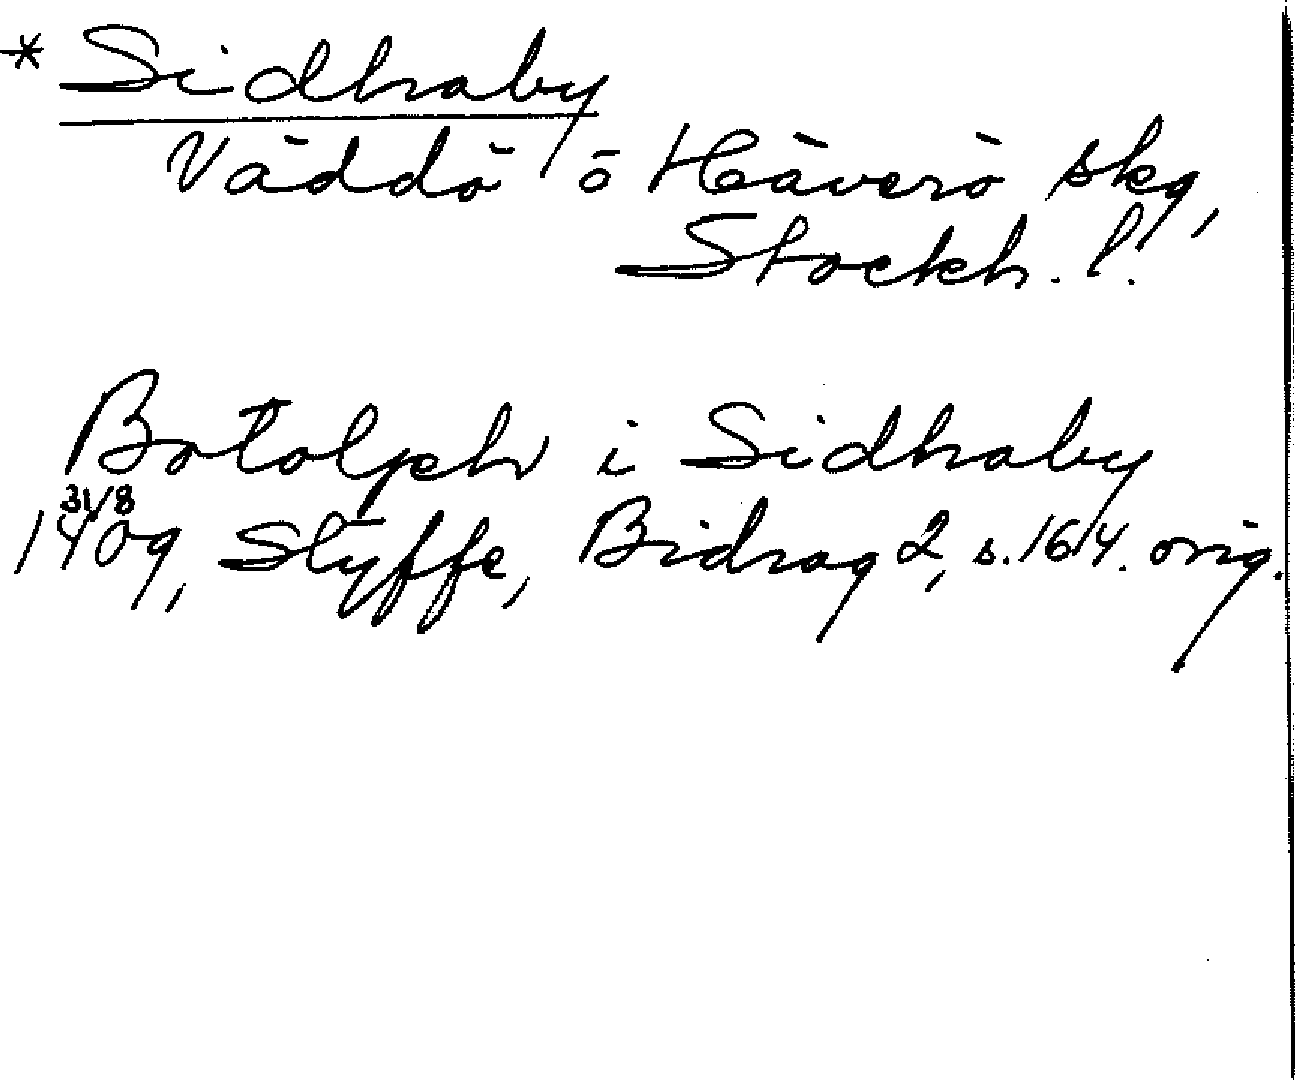 * Sidhraby
Väddö o Häverö skg,
Stockh. l.
Botolph i Sidhraby
31/8
1409, Styffe, Bidrag 2, s. 164. orig.